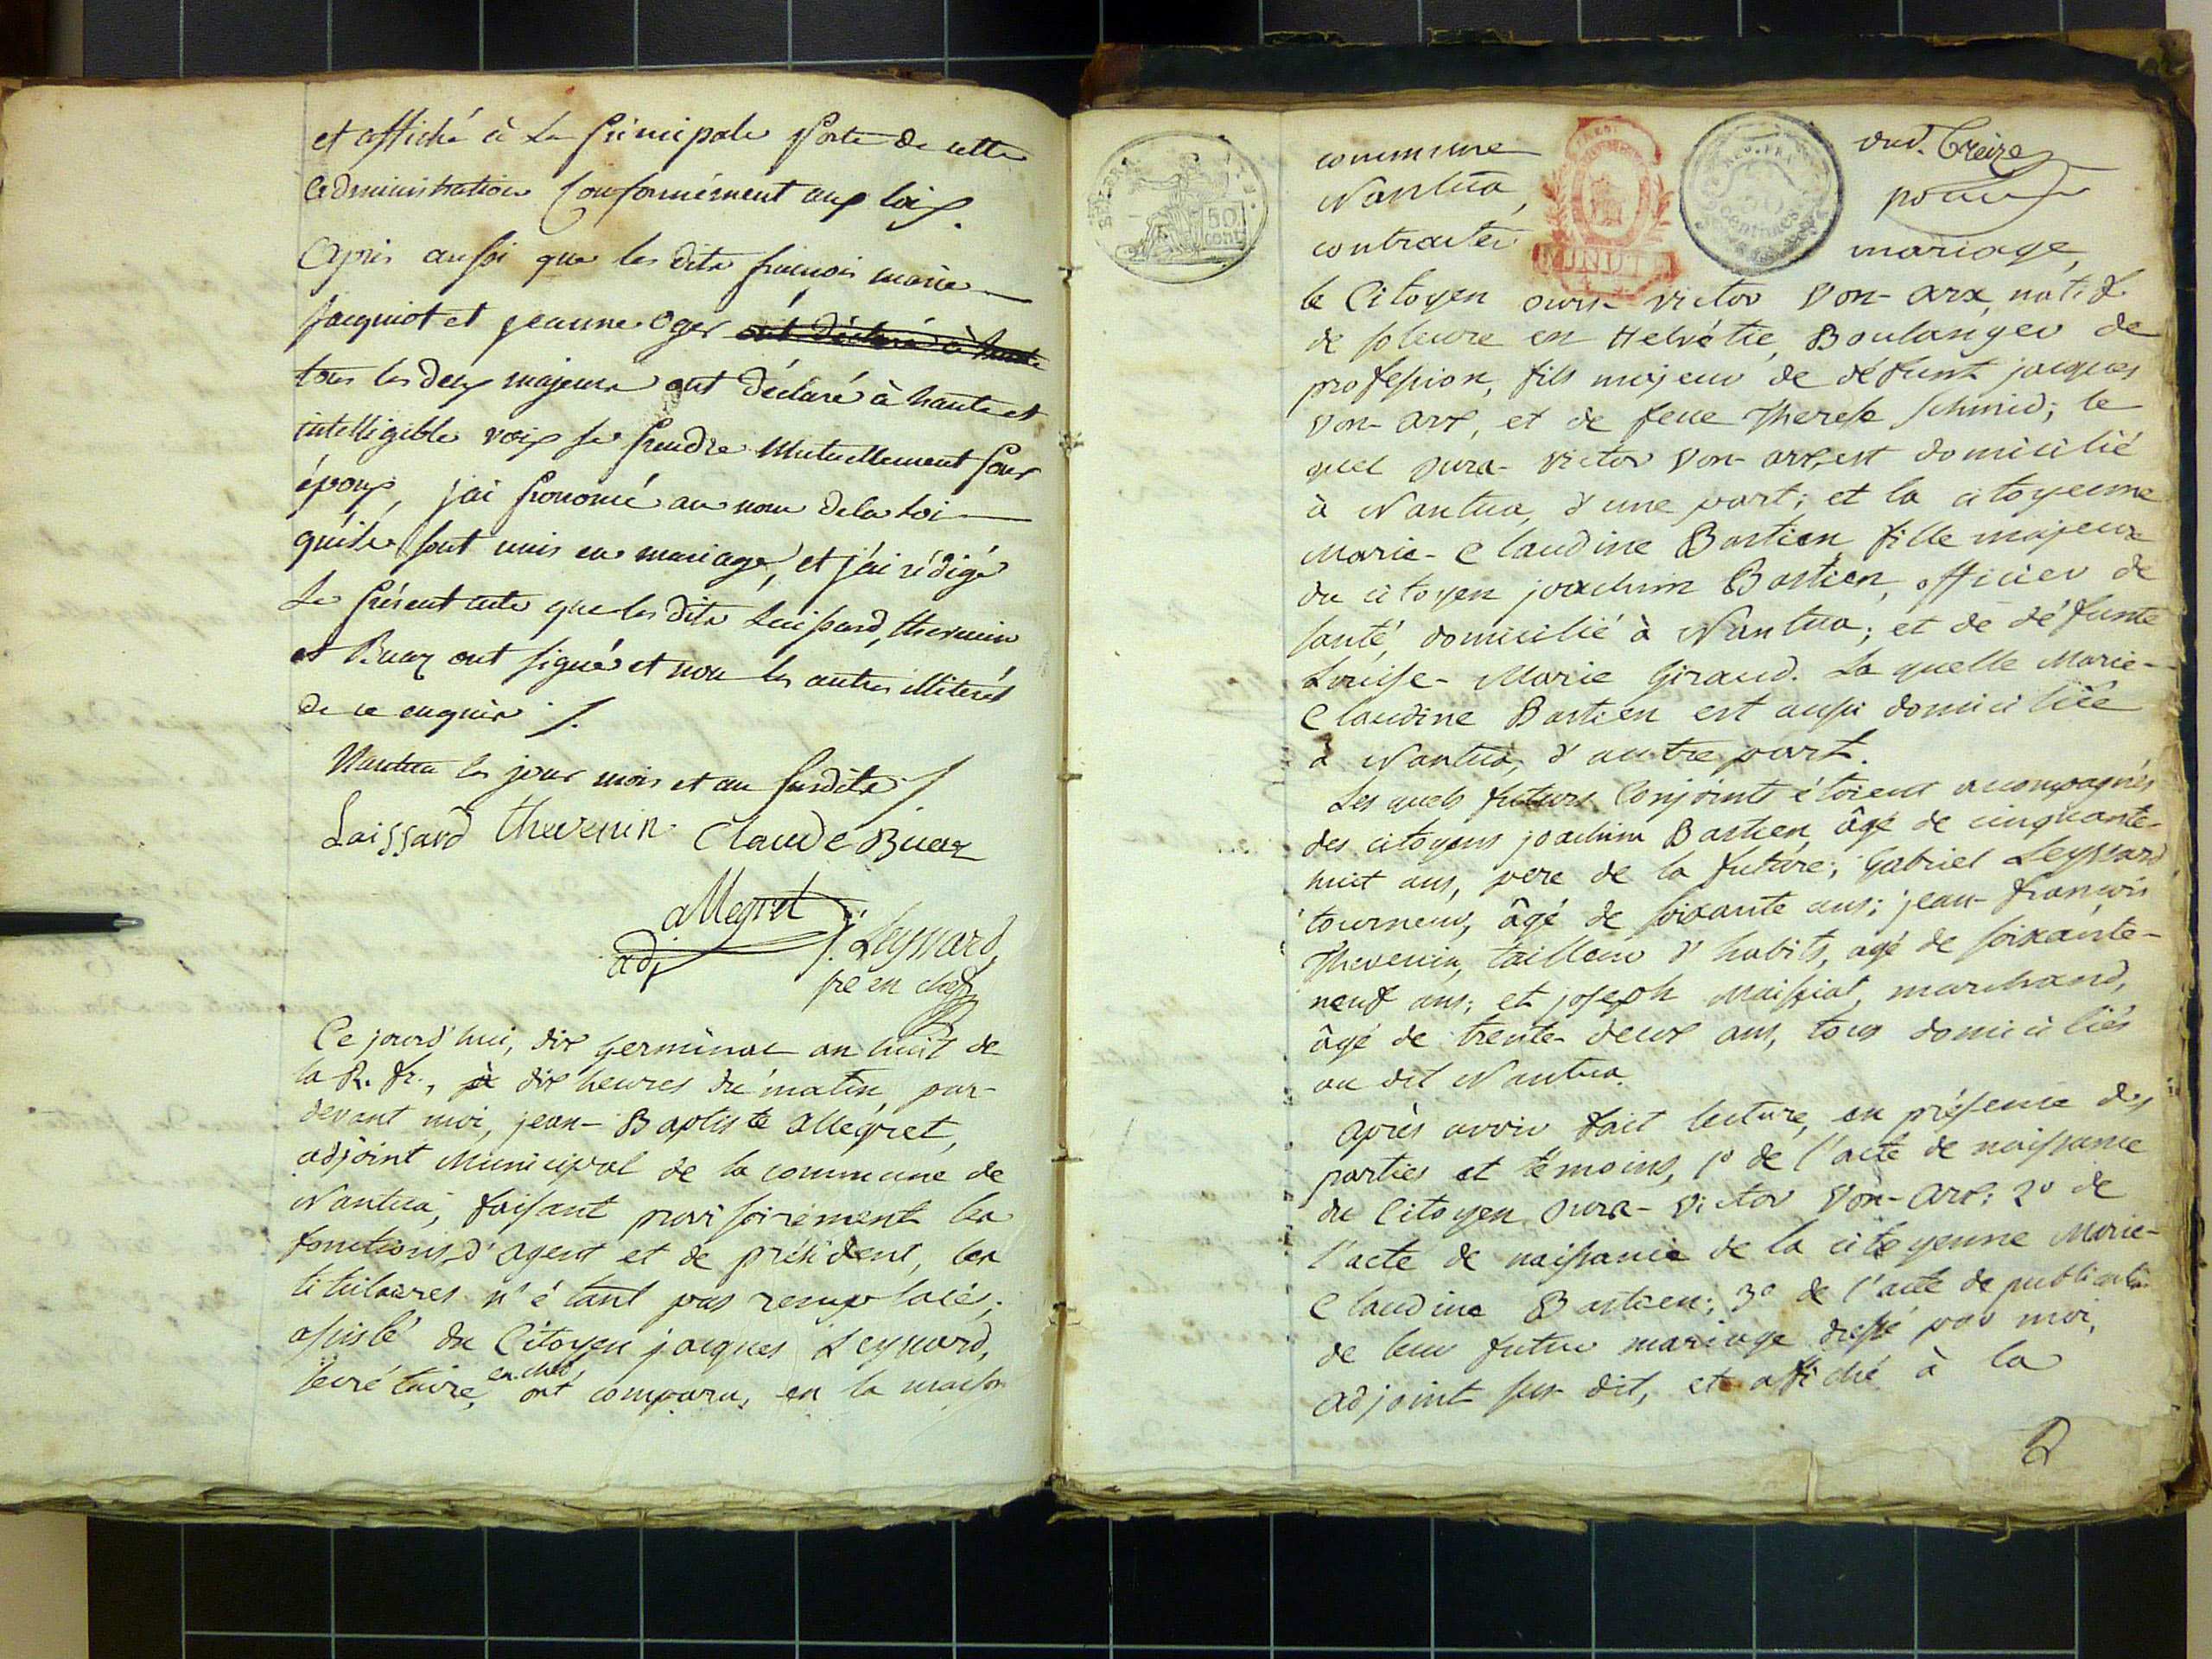 et affiché à la principale Porte de cette
administration Conformément aux loix.
Après aussi que les dits françois marie
Jacquiot et jeanne Oger ont déclaré à haute
tous les deux majeurs ont déclaré à haute et
intelligible voix se prendre Mutuellement pour
époux, j'ai prononcé au nom de la Loi
qu'ils sont unis en mariage, et j'ai rédigé
Le présent acte que les dits Laissard, thevenin
et Buaz ont signé et non les autres illiterés
de ce enquis ./.
Nantua les jour mois et an susdits ./.
Laissard thevenin Claude Buaz
allegret
adj J. Leyssard,
sre en chef
Ce jourd'hui, dix germinal an huit de
la R. fr., à dix heures du matin, par-
devant moi, jean-Baptiste allégret,
adjoint Municipal de la commune de
Nantua, faisant provisoirement les
fonctions d'agent et de président, les
titulaires n'étant pas remplacés;
assisté du Citoyen jacques Leyssard,
secrétaire en chef, ont comparu, en la maison
REP. FRA.
50 cent.
MINUTE
REP. FRA.
50
centimes
commune
Nantua,
contracter
Treize
pour
mariage,
le Citoyen ours-victor Von-arx, natif
de soleure en Helvétie, Boulanger de
profession, fils majeur de défunt jacques
Von-arx, et de feue Therese Schmid; le
quel ours-victor Von-arx, est domicilié
à Nantua, d'une part; et la citoyenne
Marie-Claudine Bastien fille majeure
du citoyen joachim Bastien, officier de
santé, domicilié à Nantua; et de défunte
Louise-Marie Giraud. La quelle Marie-
Claudine Bastien est aussi domiciliée
à Nantua, d'autre part.
Les quels futurs Conjoints étoient accompagnés
des citoyens joachim Bastien, âgé de cinquante-
huit ans, pere de la future; Gabriel Leyssard
tourneur, âgé de soixante ans; jean-françois
Thevenin, tailleur d'habits, agé de soixante-
neuf ans; et joseph Maissiat, marchand,
âgé de trente-deux ans, tous domiciliés
au dit Nantua.
après avoir fait lecture, en présence des
parties et témoins, 1º de l'acte de naissance
du Citoyen ours-Victor Von-arx; 2º de
l'acte de naissance de la citoyenne Marie-
Claudine Bastien; 3º de l'acte de publication
de leur futur mariage dressé par moi,
adjoint sus-dit, et affiché à la